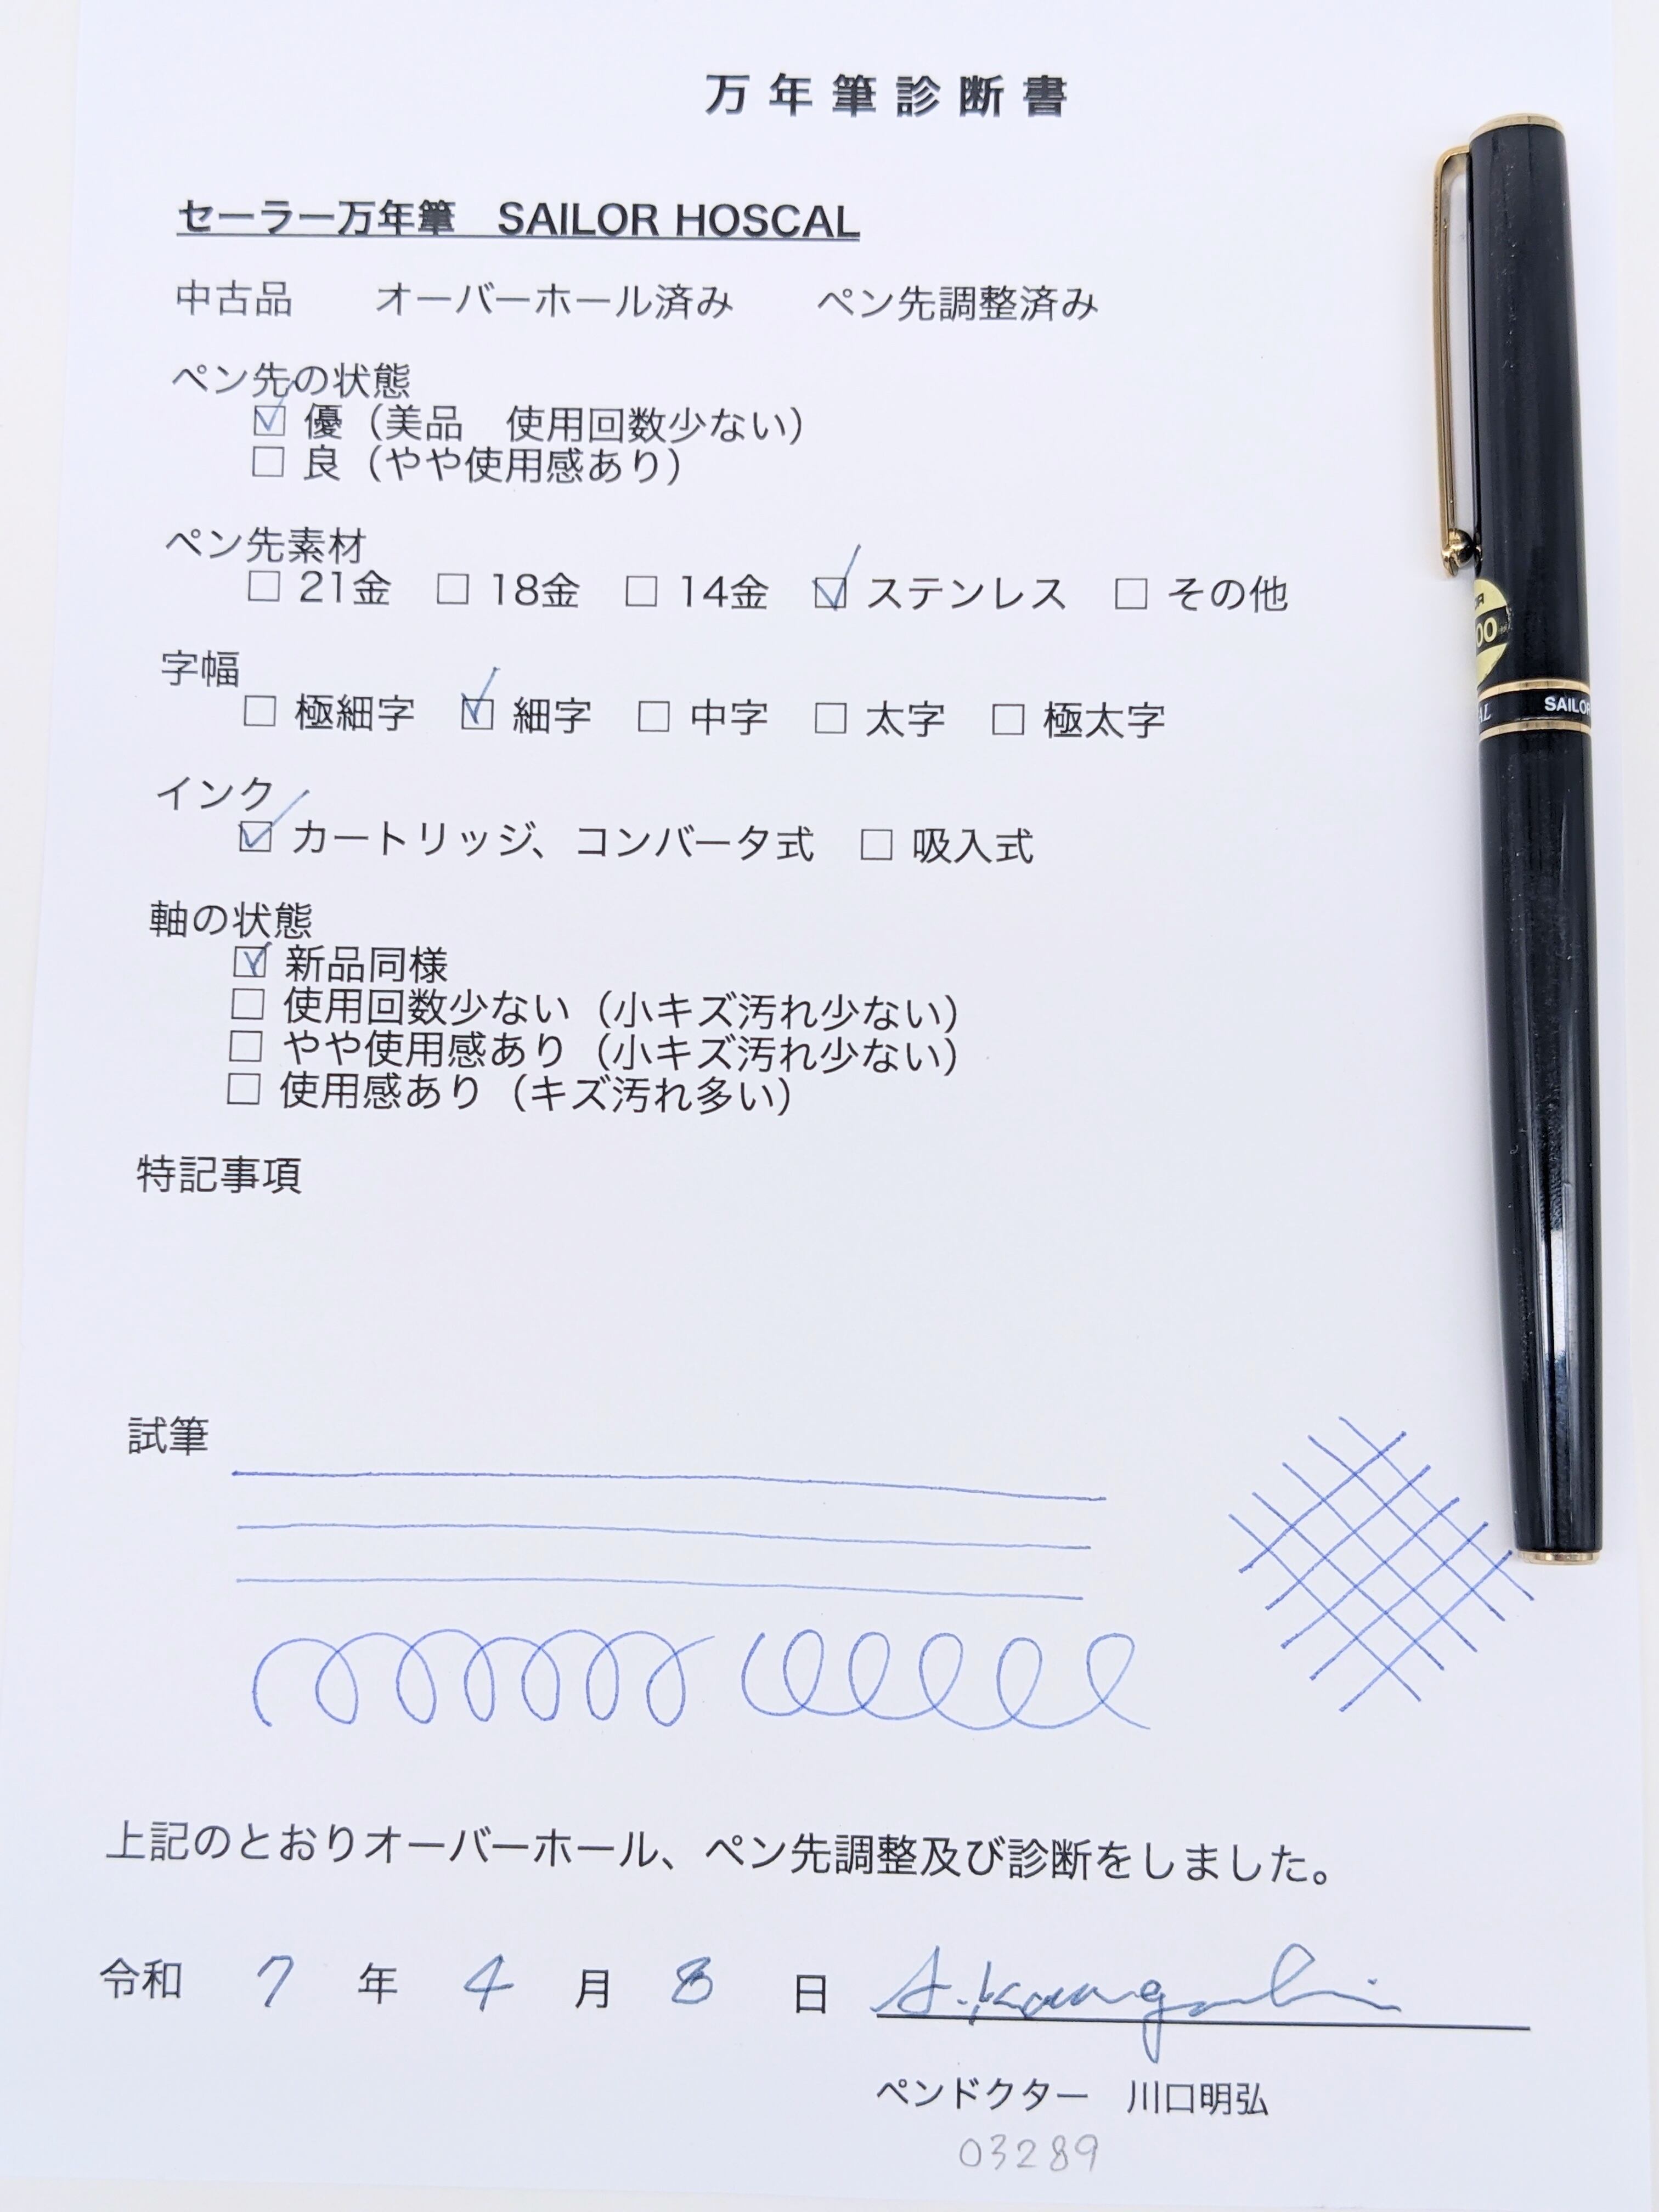 万年筆診断書
セーラー万年筆　SAILOR HOSCAL
中古品　オーバーホール済み　ペン先調整済み
ペン先の状態
☑ 優（美品　使用回数少ない）
☐ 良（やや使用感あり）
ペン先素材
☐ 21金 ☐ 18金 ☐ 14金 ☑ ステンレス ☐ その他
字幅
☐ 極細字 ☑ 細字 ☐ 中字 ☐ 太字 ☐ 極太字
インク
☑ カートリッジ、コンバータ式 ☐ 吸入式
軸の状態
☑ 新品同様
☐ 使用回数少ない（小キズ汚れ少ない）
☐ やや使用感あり（小キズ汚れ少ない）
☐ 使用感あり（キズ汚れ多い）
特記事項
試筆
上記のとおりオーバーホール、ペン先調整及び診断をしました。
令和 7 年 4 月 8 日 A.Kawaguchi
ペンドクター　川口明弘
03289
00
SAILOR